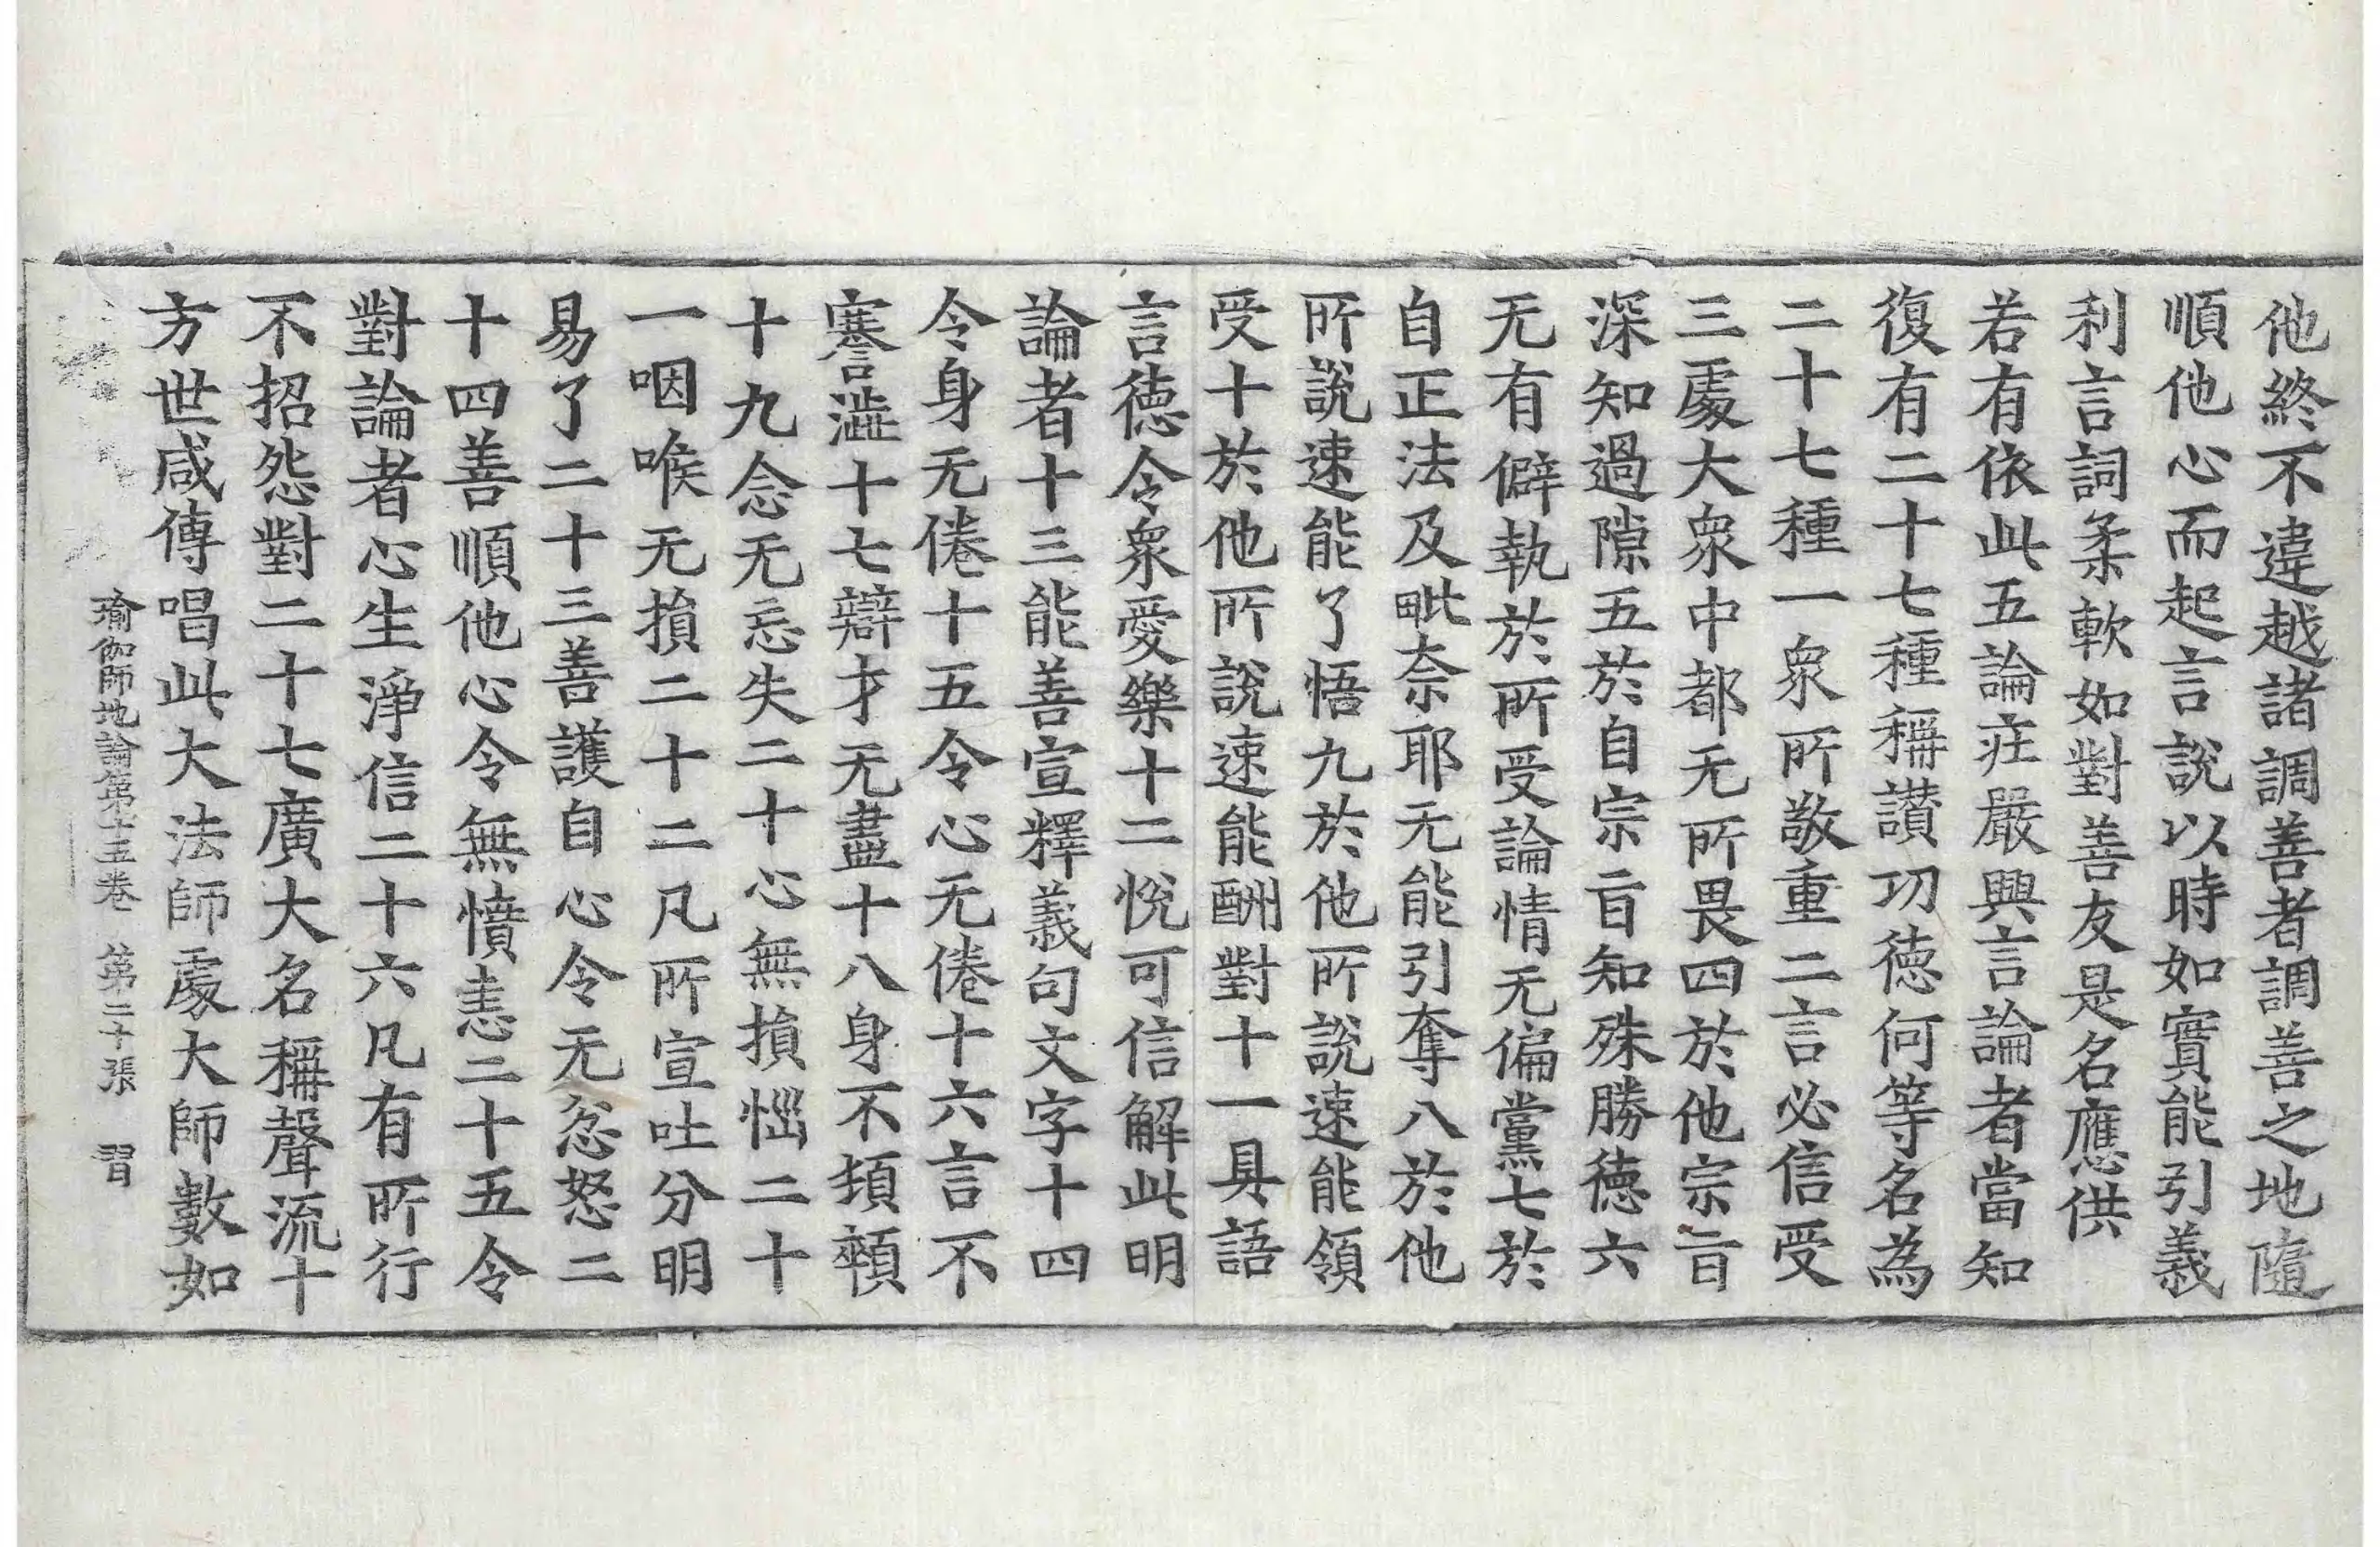 他終不違越諸調善者調善之地隨
順他心而起言說以時如實能引義
利言詞柔軟如對善友是名應供
若有依此五論莊嚴興言論者當知
復有二十七種稱讃功徳何等名為
二十七種一衆所敬重二言必信受
三處大衆中都无所畏四於他宗旨
深知過隙五於自宗旨知殊勝徳六
无有僻執於所受論情无偏黨七於
自正法及毗奈耶无能引奪八於他
所說速能了悟九於他所說速能領
受十於他所說速能酬對十一具語
言徳令衆愛樂十二悅可信解此明
論者十三能善宣釋義句文字十四
令身无倦十五令心无倦十六言不
謇澁十七辯才无盡十八身不頓顇
十九念无忘失二十心無損惱二十
一咽喉无損二十二凡所宣吐分明
易了二十三善護自心令无忿怒二
十四善順他心令無憤恚二十五令
對論者心生淨信二十六凡有所行
不招怨對二十七廣大名稱聲流十
方世咸傳唱此大法師處大師數如
瑜伽師地論第十五卷 第二十張 習